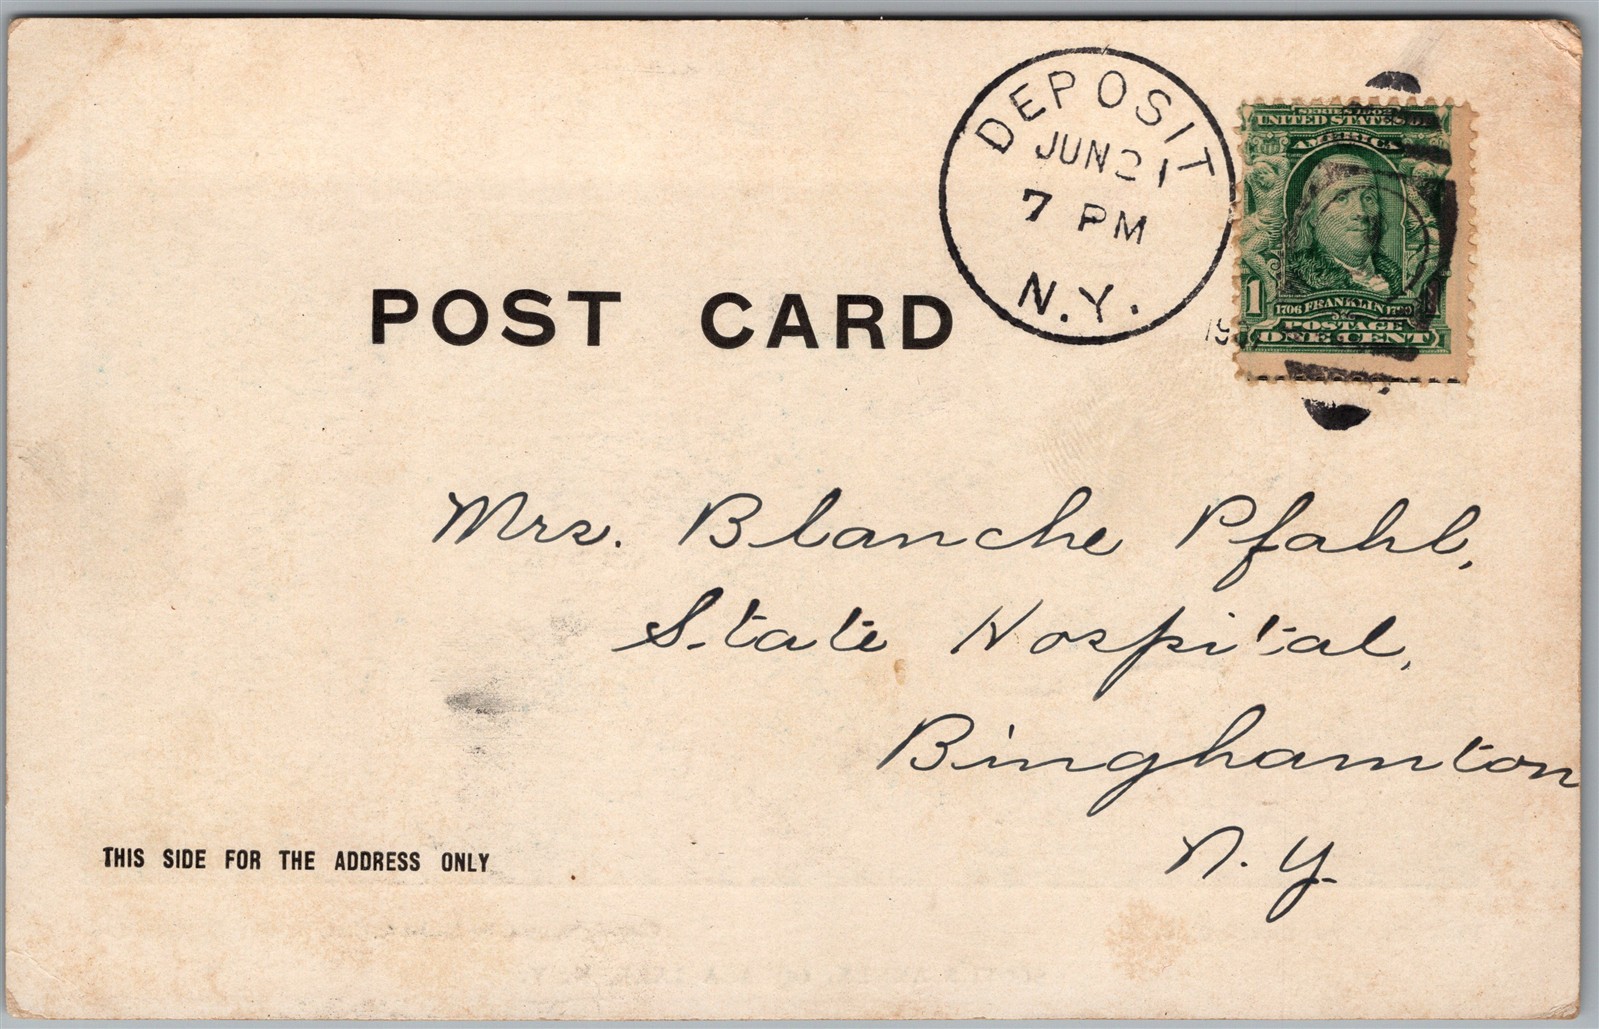 DEPOSIT
JUN 21
7 PM
N.Y.
SERIES 1902
UNITED STATES OF
AMERICA
1
1706 FRANKLIN 1790
POSTAGE
ONE CENT
POST CARD
Mrs. Blanche Pfahl,
State Hospital,
Binghamton
N. Y.
THIS SIDE FOR THE ADDRESS ONLY